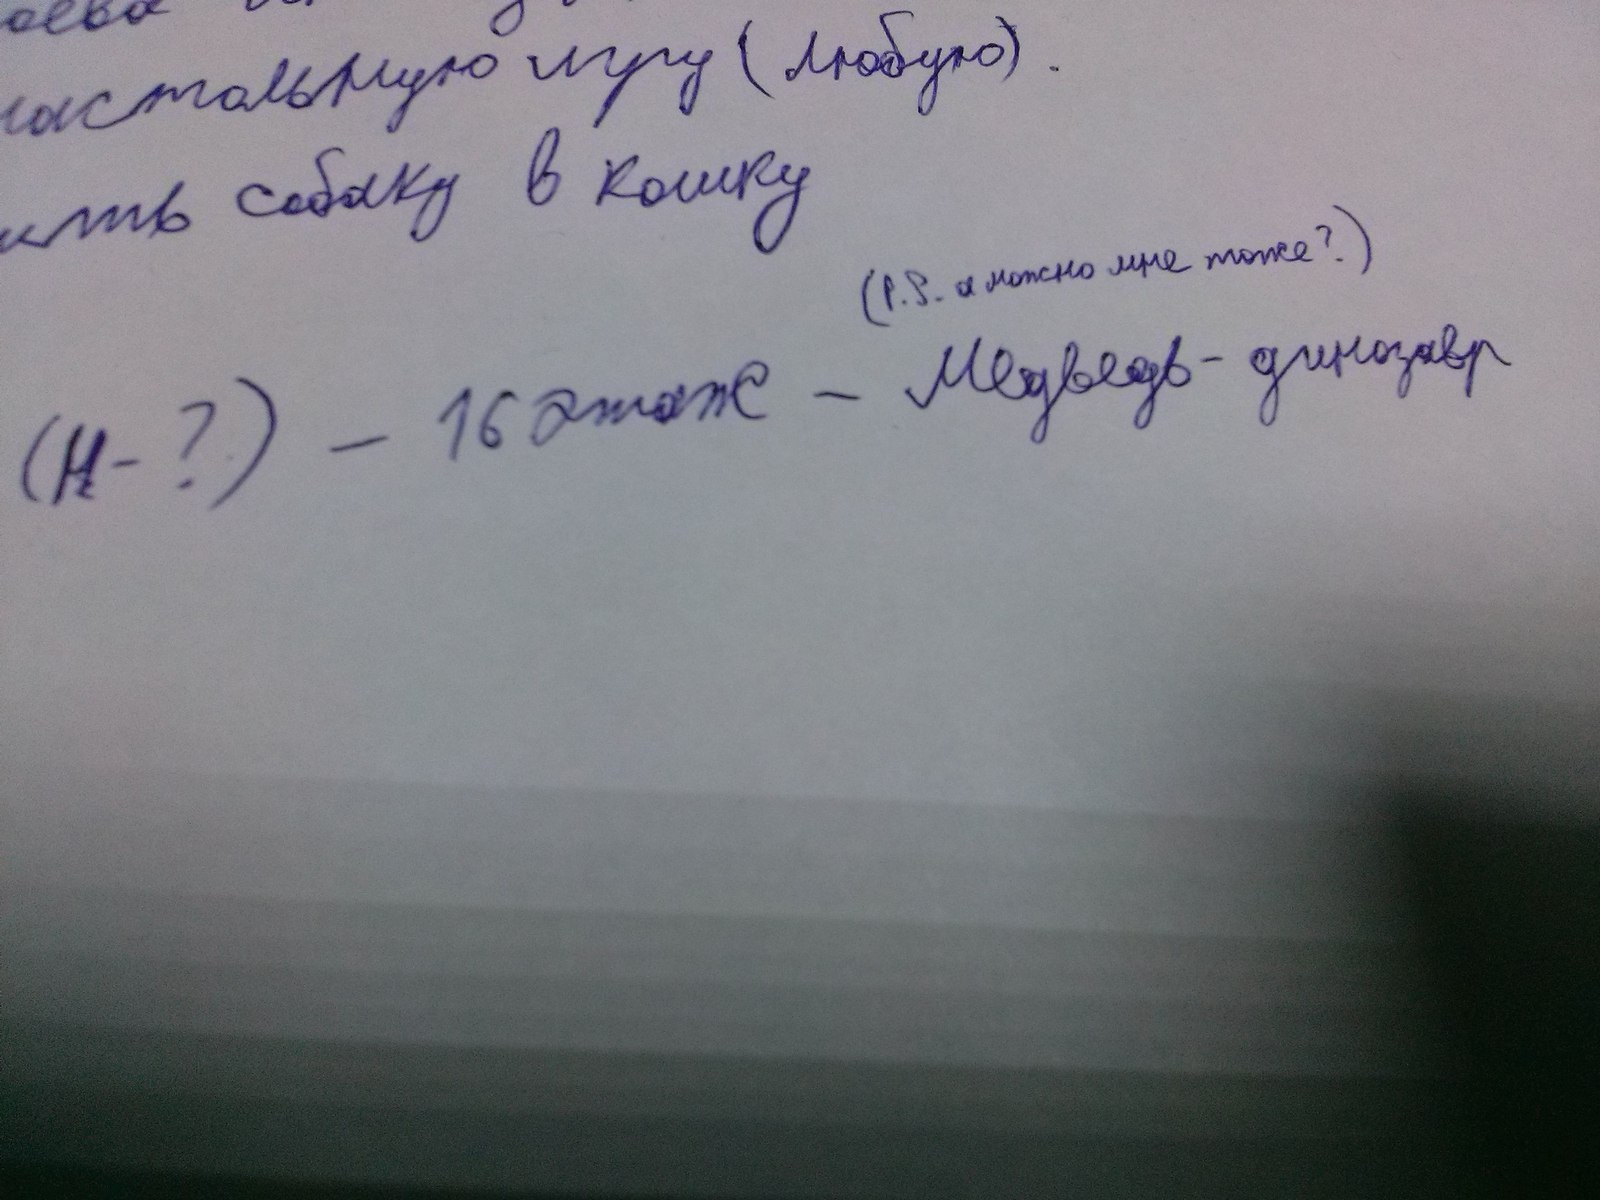 настольную игру (любую).
ить собаку в кошку
(P.S. а можно мне тоже?)
(Н-?) – 16 этаж – Медведь-динозавр